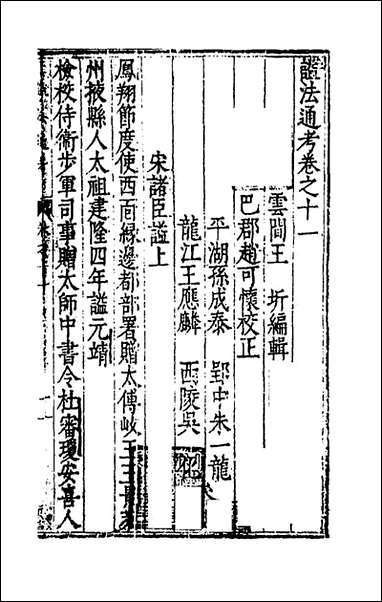 諡法通考卷之十一
雲間王　圻編輯
巴郡趙可懷校正
平湖孫成泰　郢中朱一龍
龍江王應麟　西陵吳
宋諸臣謚上
鳳翔節度使西面緣邊都部署贈太傅岐王王景萊
州掖縣人太祖建隆四年謚元靖
檢校侍衛步軍司事贈太師中書令杜審瓊安喜人